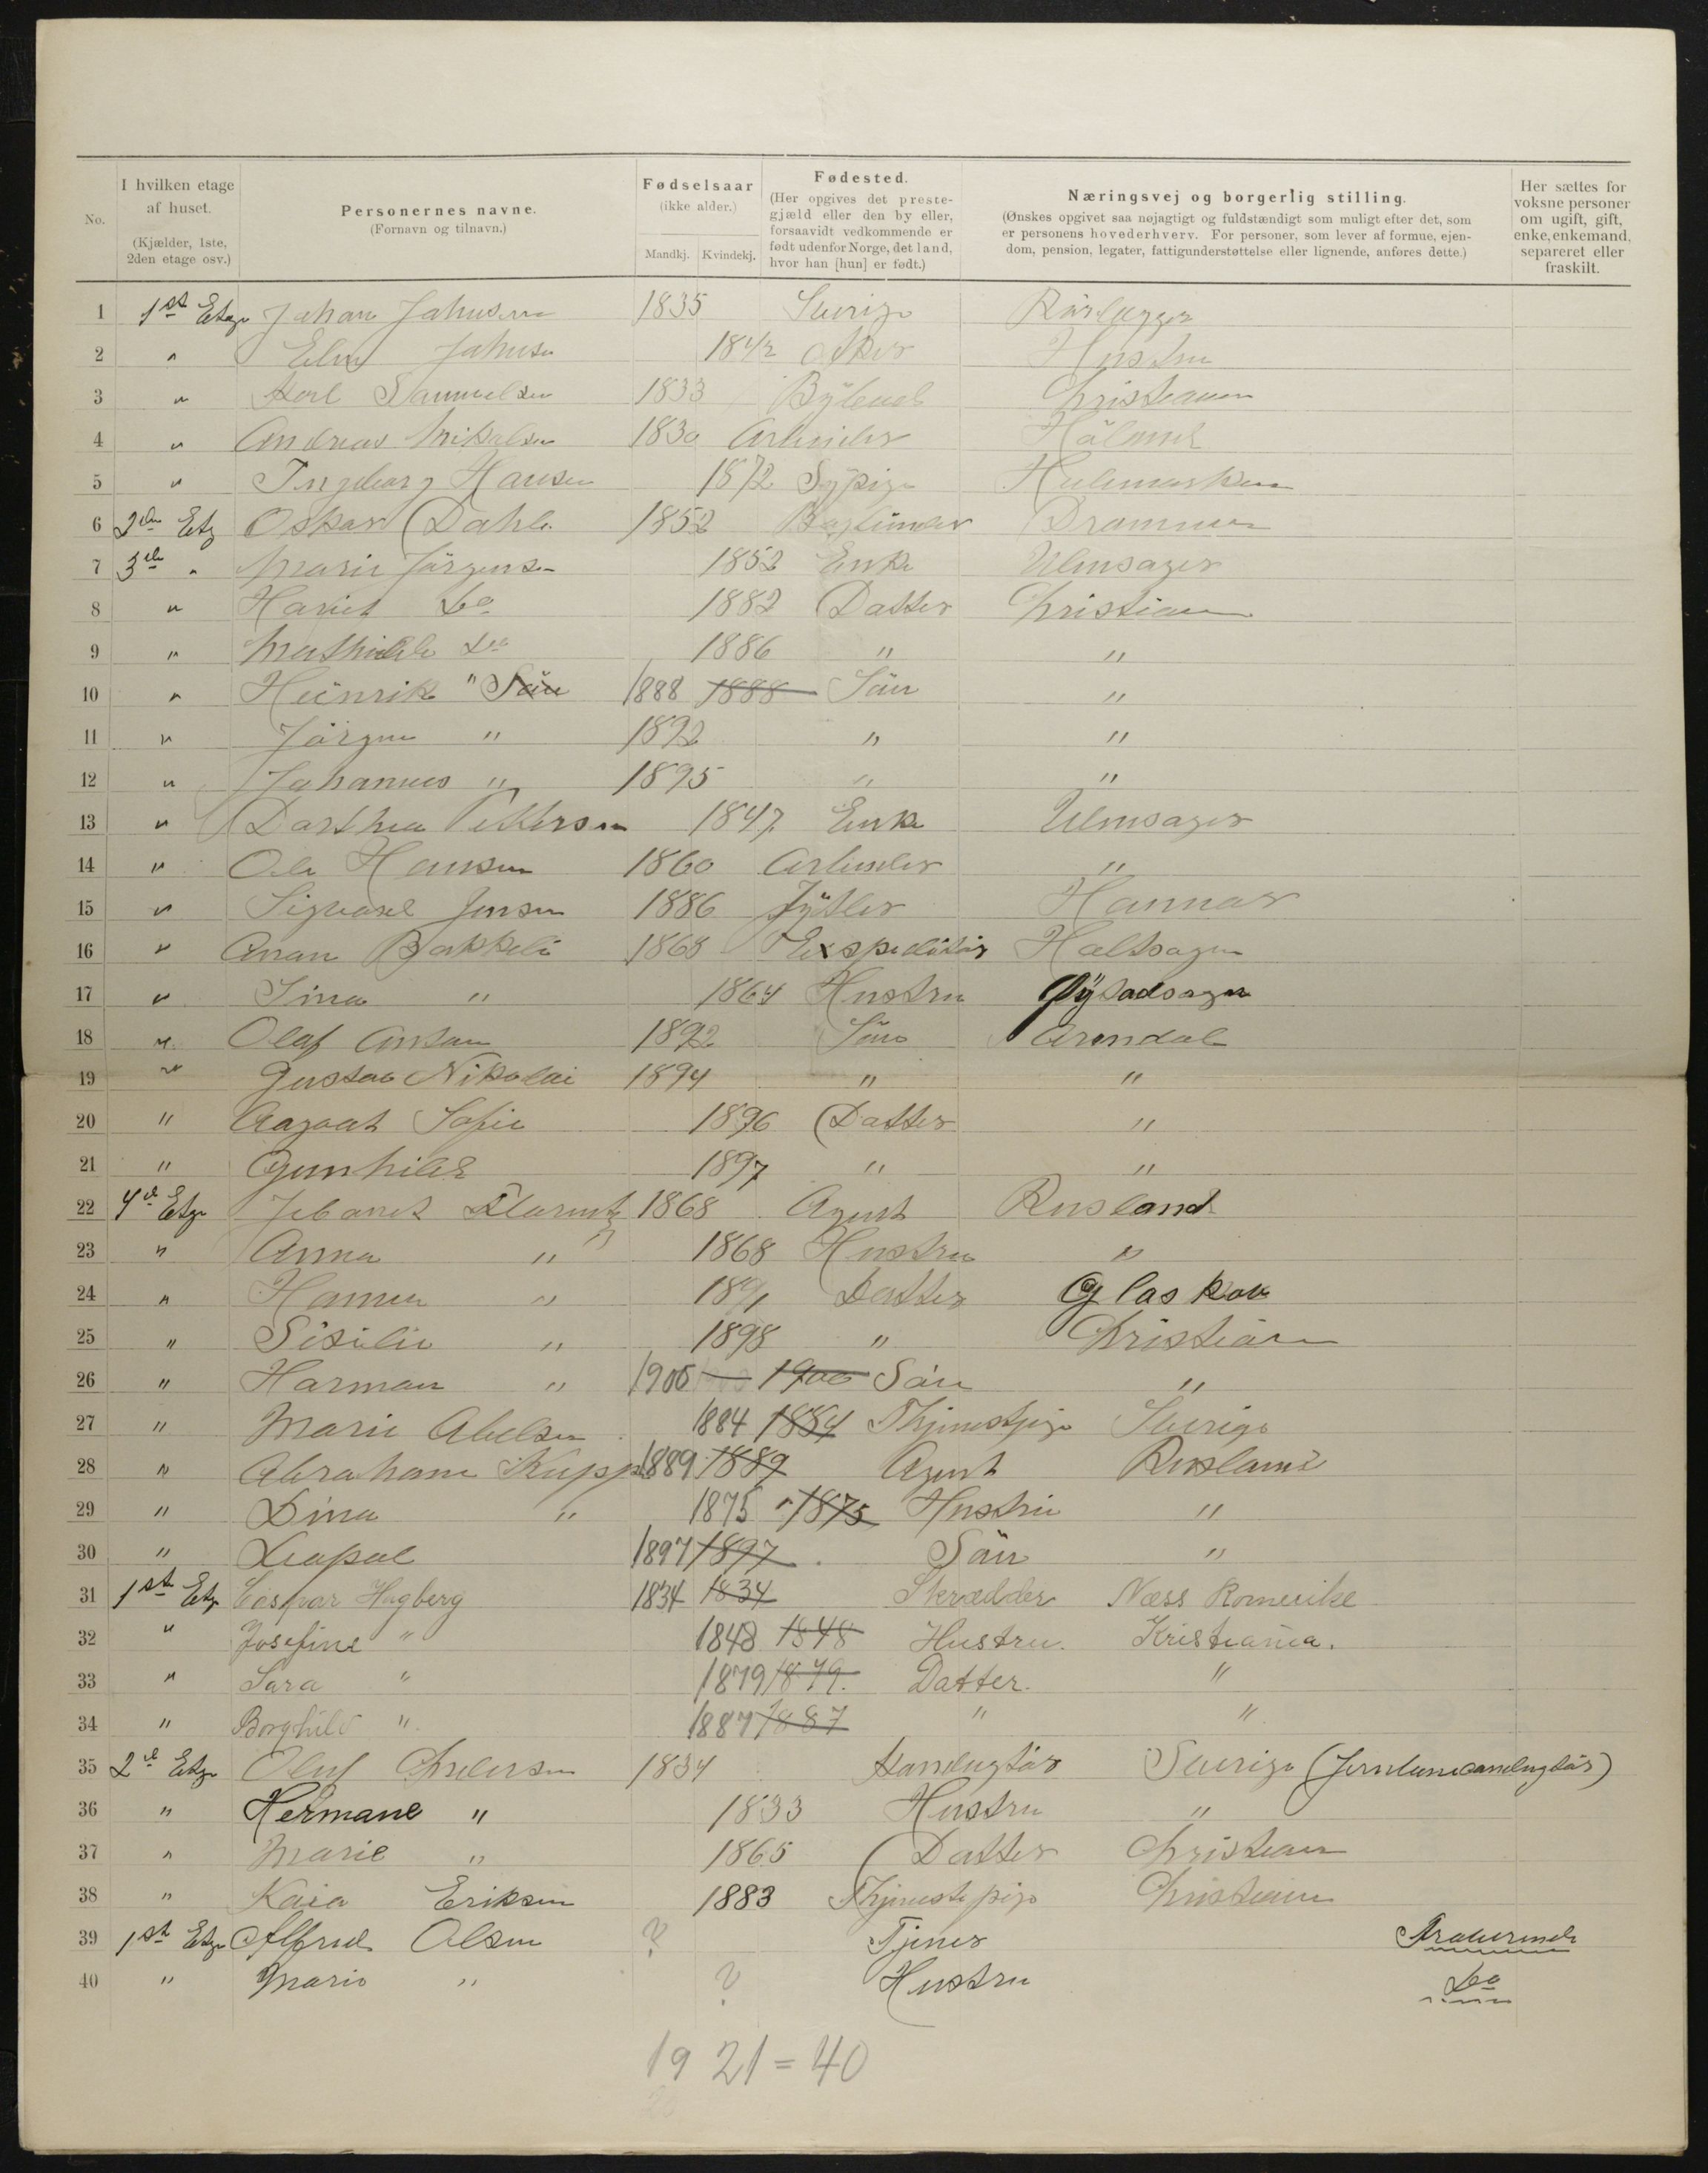 No.
I hvilken etage af huset. (Kjælder, 1ste, 2den etage osv.)
Personernes navne. (Fornavn og tilnavn.)
Fødselsaar (ikke alder.) Mandkj. Kvindekj.
Fødested. (Her opgives det prestegjæld eller den by eller, forsaavidt vedkommende er født udenfor Norge, det land, hvor han [hun] er født.)
Næringsvej og borgerlig stilling. (Ønskes opgivet saa nøjagtigt og fuldstændigt som muligt efter det, som er personens hovederhverv. For personer, som lever af formue, ejendom, pension, legater, fattigunderstøttelse eller lignende, anføres dette.)
Her sættes for voksne personer om ugift, gift, enke, enkemand, separeret eller fraskilt.
1 1st Etage Johan Johnsen 1835 Sverige Rörlægger
2 " Johnsen 1842 Asker Hustru
3 " Karl Samuelsen 1833 Christiania
4 " Andreas Mikalsen 1830 Arbeider
5 " Ingeborg Hansen 1872 Sypige
6 2den Etg Oskar Dahl 1852 Drammen
7 3de " Marie Jörgensen 1852 Enke Ulensager
8 " Hariet Do 1882 Datter Christiania
9 " Mathilde Do 1886 " "
10 " Heinrik " Sön 1888 1888 Sön "
11 " Jörgen " 1892 " "
12 " Johannes " 1895 " "
13 " Darthea Pettersen 1847 Enke Ulensager
14 " Ole Hansen 1860 Arbeider "
15 " Sigvard Jensen 1886 Hammar
16 " Bakkeli 1868 Expeditör
17 " Sina " 1864 Hustru
18 " Olaf Anton 1892 Sön Arendal
19 " Gustav Nikolai 1894 " "
20 " Aagaat Sofie 1896 Datter "
21 " Gunhild 1897 " "
22 4d Etg 1868 Agent Rusland
23 " Anna " 1868 Hustru "
24 " Hanna " 1891 Datter Glaskov
25 " Sisilie " 1898 " Christiania
26 " Harman " 1900 1900 Sön "
27 " Marie Abelsen 1884 1884 Thjenestpige Sverige
28 " Abraham Kupp 1889 1889 Agent Rusland
29 " Dina " 1875 1875 Hustru "
30 " Leopol 1897 1897 Sön "
31 1st Etg Caspar Hagberg 1834 1834 Skrædder Næss Romerike
32 " Josefine " 1848 1848 Hustru. Kristiania.
33 " Sara " 1879 1879. Datter. "
34 " Borghild " 1887 1887 " "
35 2d Etg Oluf Andersen 1834 Kondugtör Sverige (Jernbanecondugtör)
36 " Hermane " 1833 Hustru "
37 " Marie " 1865 Datter Christiania
38 " Kaia Eriksen 1883 Thjenestepige Christiania
39 1st Etg Alfred Olsen ? Tjener Fraværende
40 " Marie " ? Hustru Do
19 21 = 40